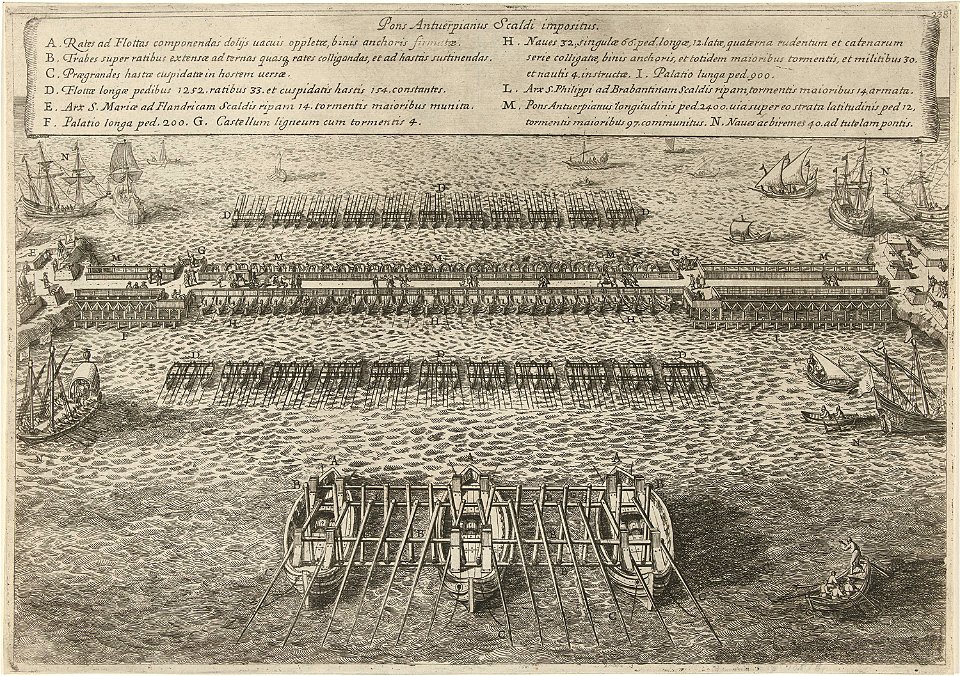 238
Pons Antuerpianus Scaldi impositus.
A. Rates ad Flottas componendas dolijs uacuis oppletæ, binis anchoris firmatæ.
B. Trabes super ratibus extensæ ad ternas quasq, rates colligandas, et ad hastas sustinendas.
C. Prægrandes hastæ cuspidatæ in hostem versæ.
D. Flottæ longæ pedibus 1252. ratibus 33. et cuspidatis hastis 154. constantes.
E. Arx S. Mariæ ad Flandricam Scaldis ripam 14. tormentis maioribus munita.
F. Palatio longa ped. 200. G. Castellum ligneum cum tormentis 4.
H. Naues 32, singulæ 66. ped. longæ, 12. latæ, quaterna rudentum et catenarum
serie colligatæ, binis anchoris, et totidem maioribus tormentis, et militibus 30.
et nautis 4. instructæ. I. Palatio lunga ped. 900.
L. Arx S. Philippi ad Brabantinam Scaldis ripam, tormentis maioribus 14. armata.
M. Pons Antuerpianus longitudinis ped. 2400. uia super eo strata latitudinis ped 12,
tormentis maioribus 97. communitus. N. Naues ac biremes 40. ad tutelam pontis.
N
D D D
N
G M M M G M
H H H
F I
D D D
N N
A A A
B B
C C